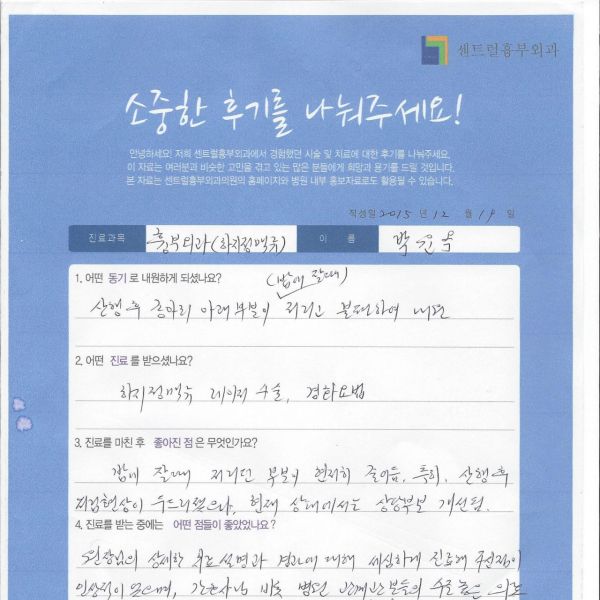 센트럴흉부외과
소중한 후기를 나눠주세요!
안녕하세요! 저희 센트럴흉부외과에서 경험했던 시술 및 치료에 대한 후기를 나눠주세요.
이 자료는 여러분과 비슷한 고민을 겪고 있는 많은 분들에게 희망과 용기를 드릴 것입니다.
본 자료는 센트럴흉부외과의원의 홈페이지와 병원 내부 홍보자료로도 활용될 수 있습니다.
작성일 2015 년 12 월 19 일
진료과목 흉부외과(하지정맥류) 이 름 박
1. 어떤 동기 로 내원하게 되셨나요? (밤에 잘때)
산행 후 종아리 아래부분이 저리고 불편하여 내원
2. 어떤 진료 를 받으셨나요?
하지정맥류 레이저 수술, 경화요법
3. 진료를 마친 후 좋아진 점 은 무엇인가요?
밤에 잘때 저리던 부분이 현저히 줄어듬, 특히, 산행 후
저림현상이 두드러졌으나, 현재 상태에서는 상당부분 개선됨.
4. 진료를 받는 중에는 어떤 점들이 좋았었나요?
원장님의 상세한 설명과 경과에 대해 세심하게 진료해 주신점이
인상적이 간호사님 비롯